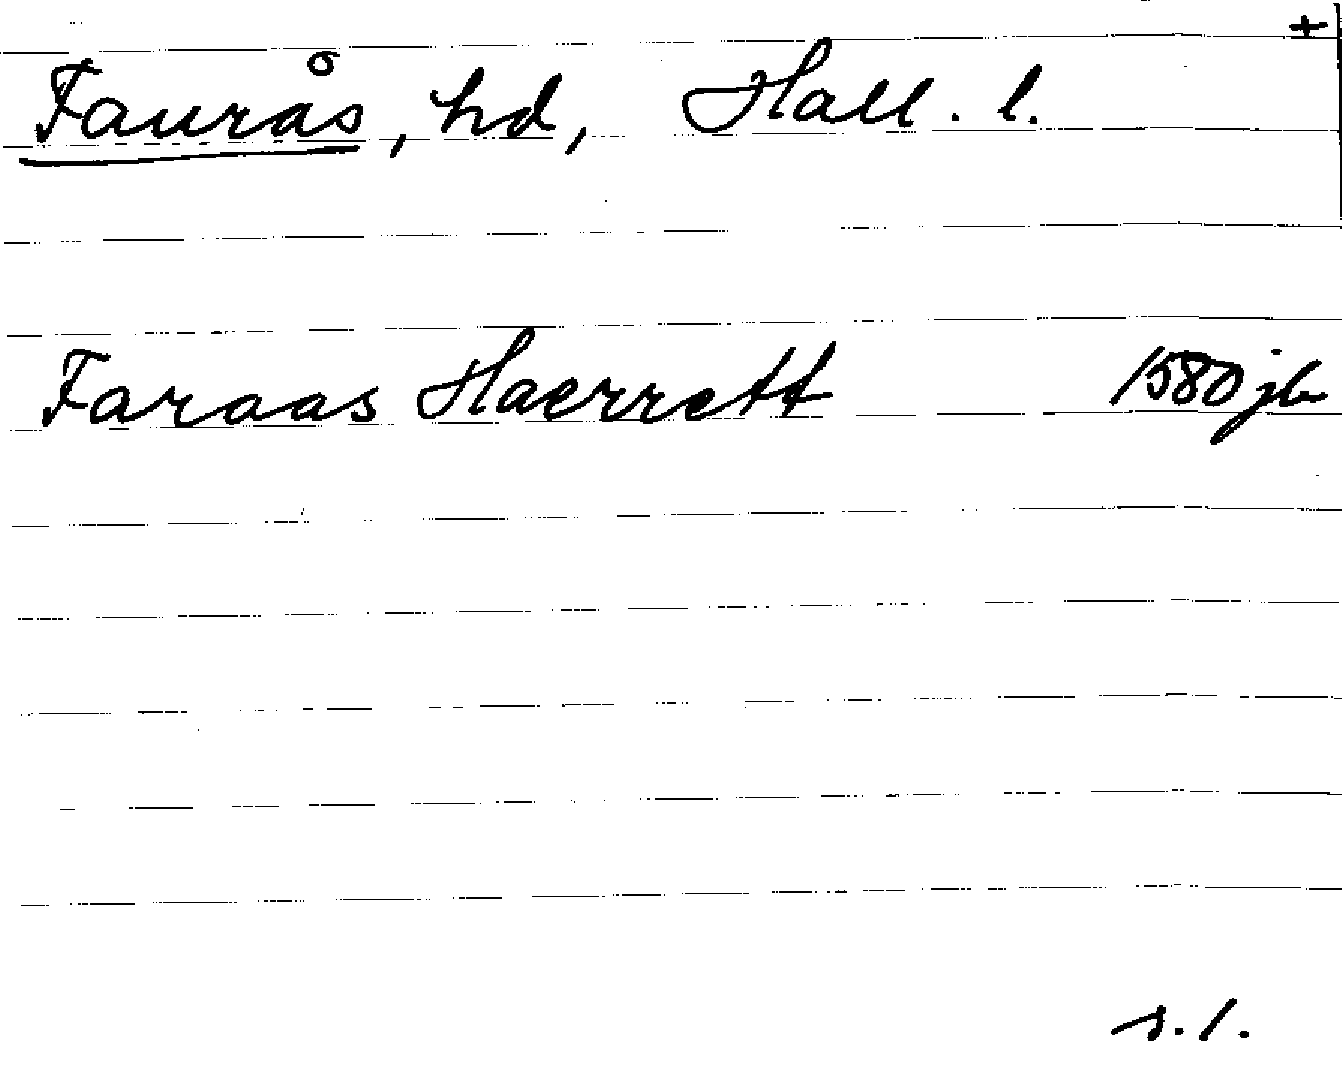 +
Faurås, hd, Hall. l.
Faraas Haerrett 1580 jb
s. 1.